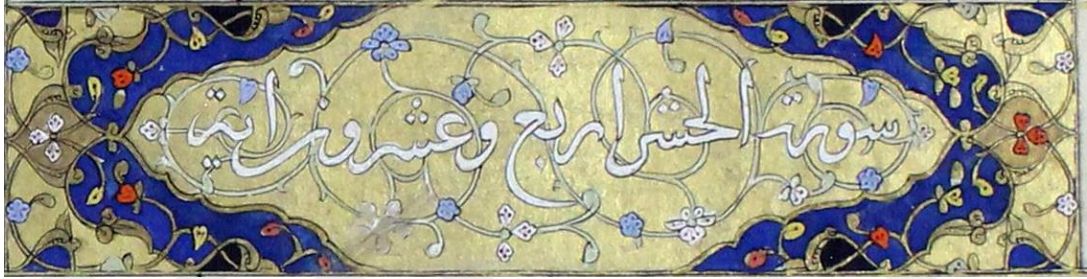 سورة الحشر اربع وعشرون اية